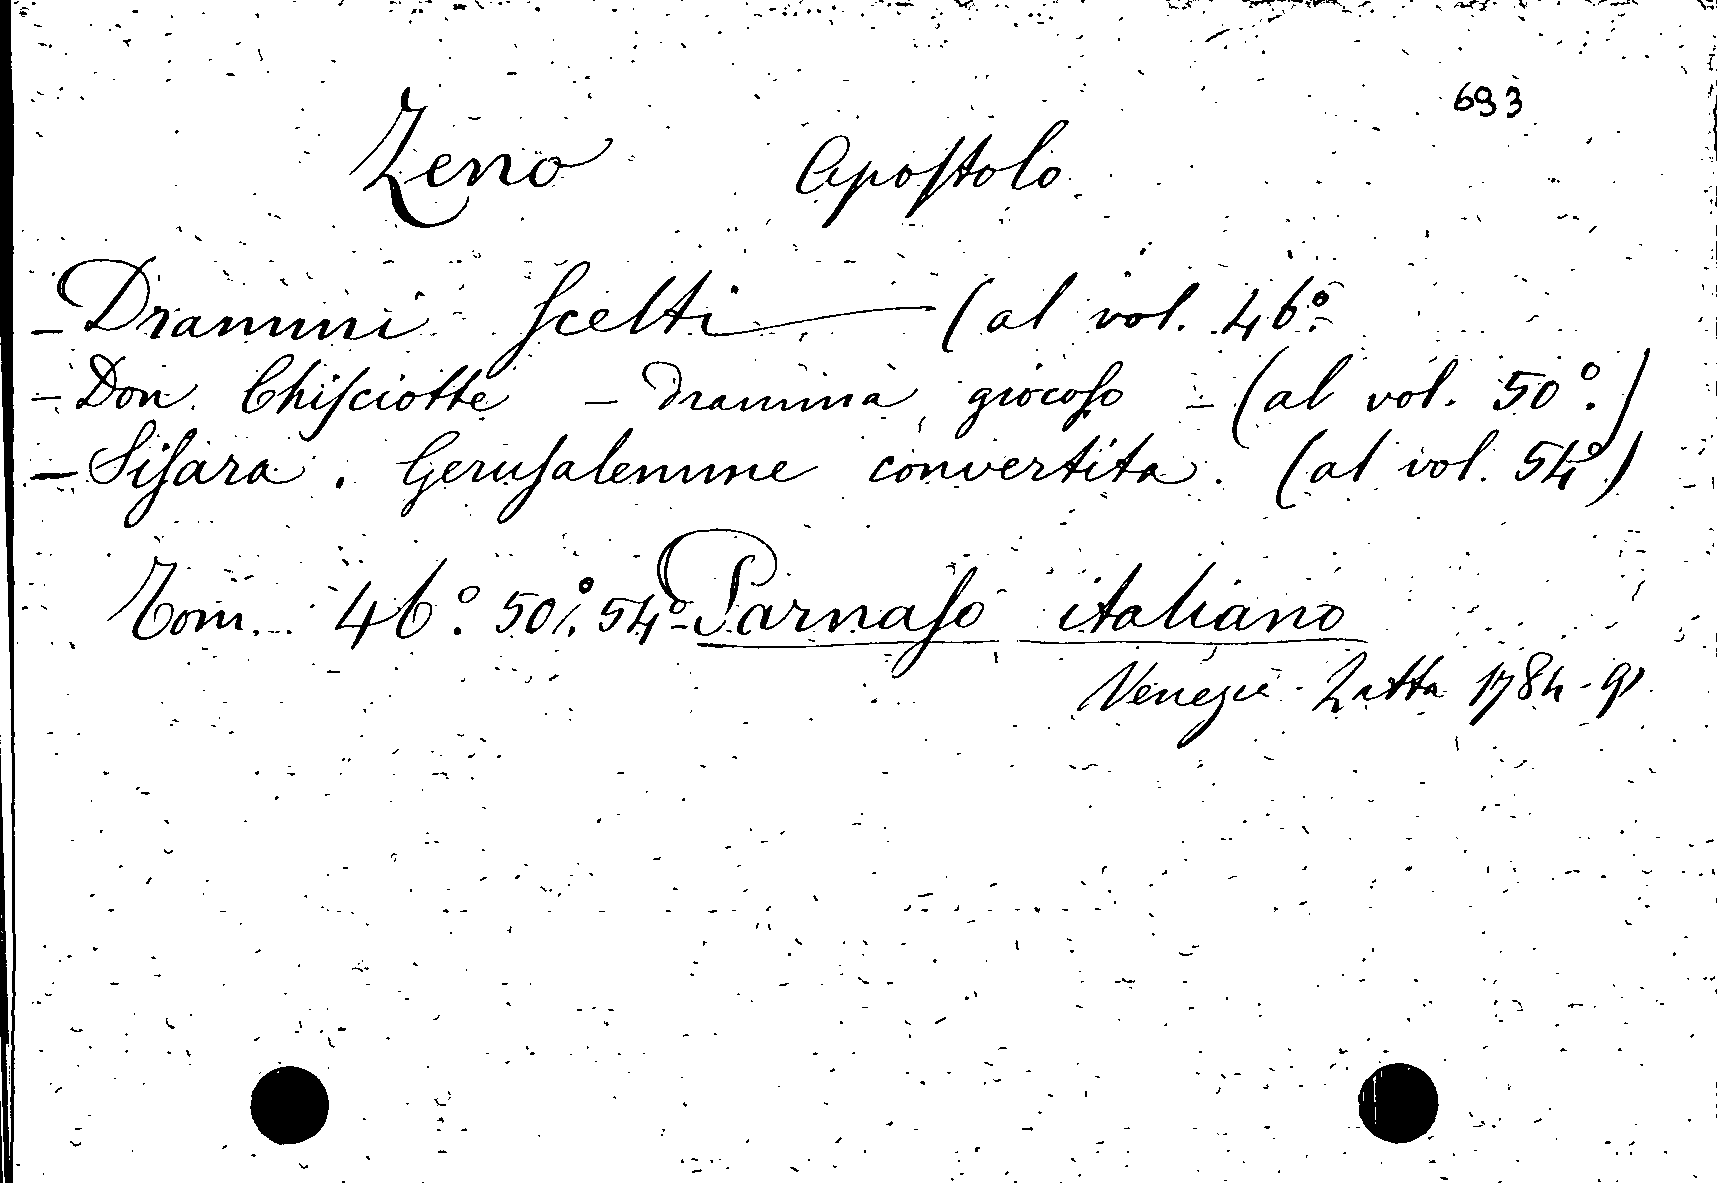 693
Zeno Apostolo
- Drammi scelti — (al vol. 46º.
- Don Chisciotte - dramma giocoso - (al vol. 50º.)
- Sisara. Gerusalemme convertita. (al vol. 54º)
Tom. 46º. 50º. 54º Parnaso italiano
Venezia - Zatta 1784-91